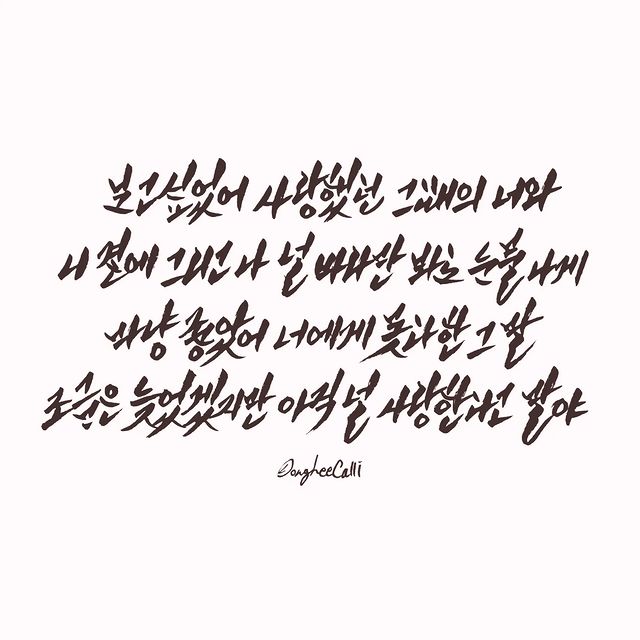 보고싶었어 사랑했던 그때의 너와
니 곁에 그런 나 널 바라만 봐도 눈물나게
마냥 좋았어 너에게 못다한 그 말
조금은 늦었겠지만 아직 널 사랑한다는 말야
DongheeCalli